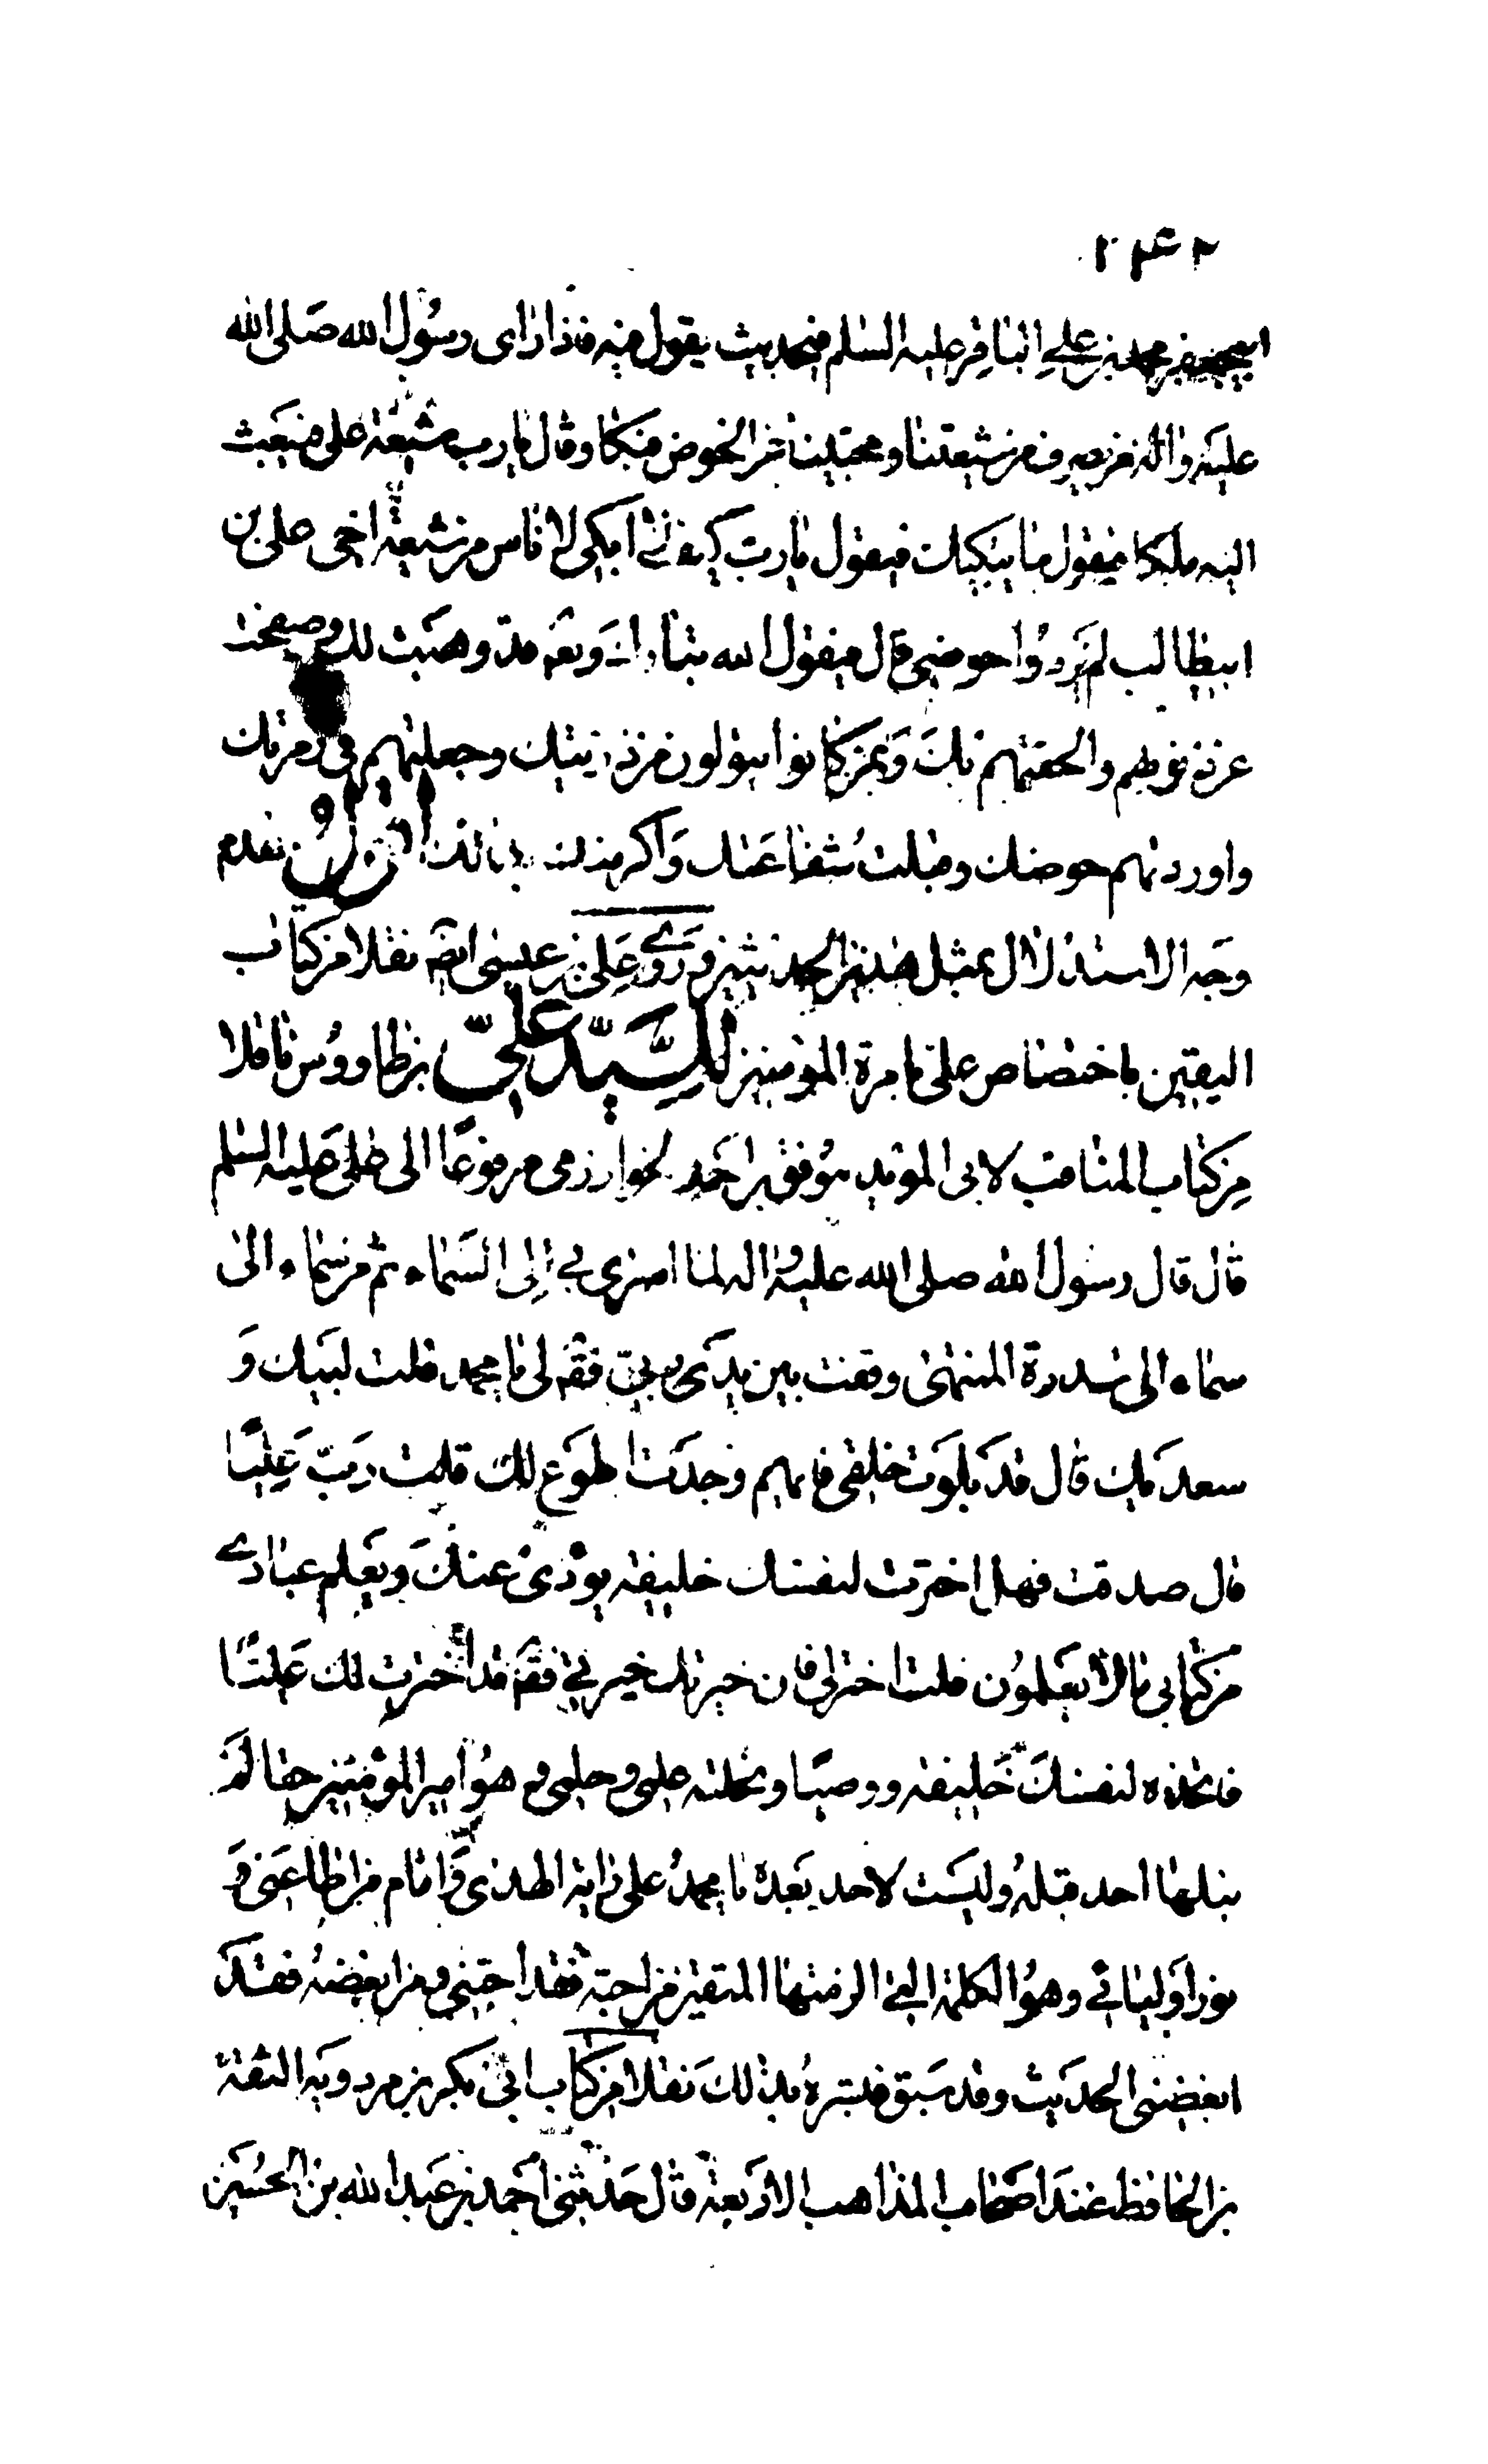 ابيجعفر محمد بن علي الباقر عليه السلم في حديث يقول فيه فاذا راى رسول الله صلى الله
عليه واله من يصرف من شيعتنا ومحبينا عن الحوض فبكا وقال يا رب شيعة علي فيبعث
اليه ملكا فيقول ما يبكيك فيقول يا رب كيف لا ابكي لاناس من شيعة اخي علي بن
ابيطالب لم يردوا حوضي قال فيقول الله تبارك وتعه قد وهبت لك وصفحت
عن ذنوبهم والحقتهم بك وبمن كانوا يتولون من ذريتك وجعلتهم في زمرتك
واوردتهم حوضك وقبلت شفاعتك واكرمتك بذلك اقول تقدم
وجه الاستدلال بمثل هذين الحديثين وروى علي بن عيسى ايضه نقلا من كتاب
اليقين باختصاص علي بامرة المؤمنين للسيد علي بن طاووس ناقلا
من كتاب المناقب لابى المؤيد موفق بن احمد الخوارزمى مرفوعا الى علي عليه السلم
قال قال رسول الله صلى الله عليه واله لما اسري بي الى السماء ثم من سماء الى
سماء الى سدرة المنتهى وقفت بين يدى ربي فقه لى يا محمد قلت لبيك و
سعديك قال قد بلوت خلقى فايهم وجدت اطوع لك قلت رب عليا
قال صدقت فهل اخترت لنفسك خليفه يودى عنك ويعلم عبادي
من كتابي ما لا يعلمون قلت اختر لي فان خيرتك خيرتي فقه قد اخترت لك عليا
فاتخذه لنفسك خليفه ووصيا ونحلته علمي وحلمي وهو امير المؤمنين حقا لم
ينلها احد قبله وليست لاحد بعده يا محمد علي راية الهدى وامام من اطاعني و
نور اوليائي وهو الكلمة التي الزمتها المتقين من احبه فقد احبني ومن ابغضه فقد
ابغضني الحديث وقد سبق فبشره بذلك نقلا من كتاب ابي بكر بن مردويه الثقة
بن الحافظ عند اصحاب المذاهب الاربعة قال حدثني احمد بن عبد الله بن الحسين